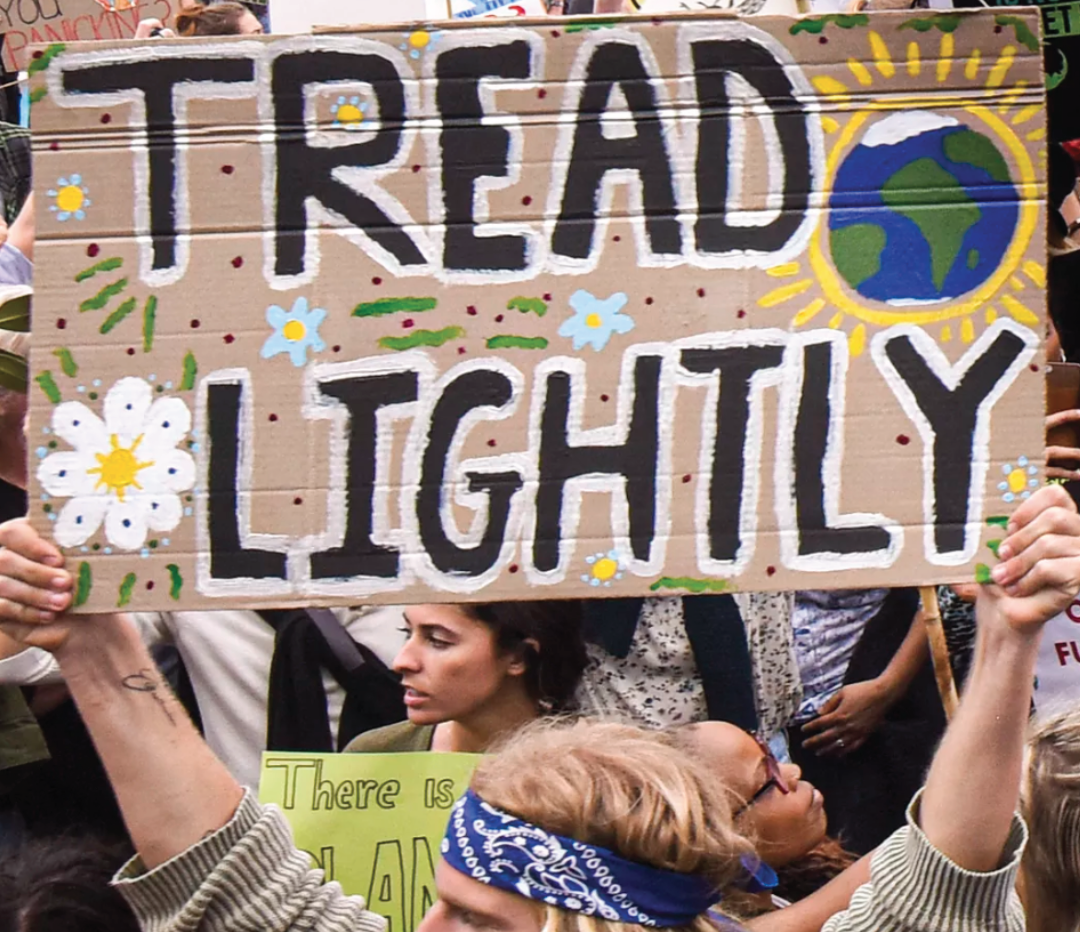 YOU
PANICKING?
TREAD
LIGHTLY
There is